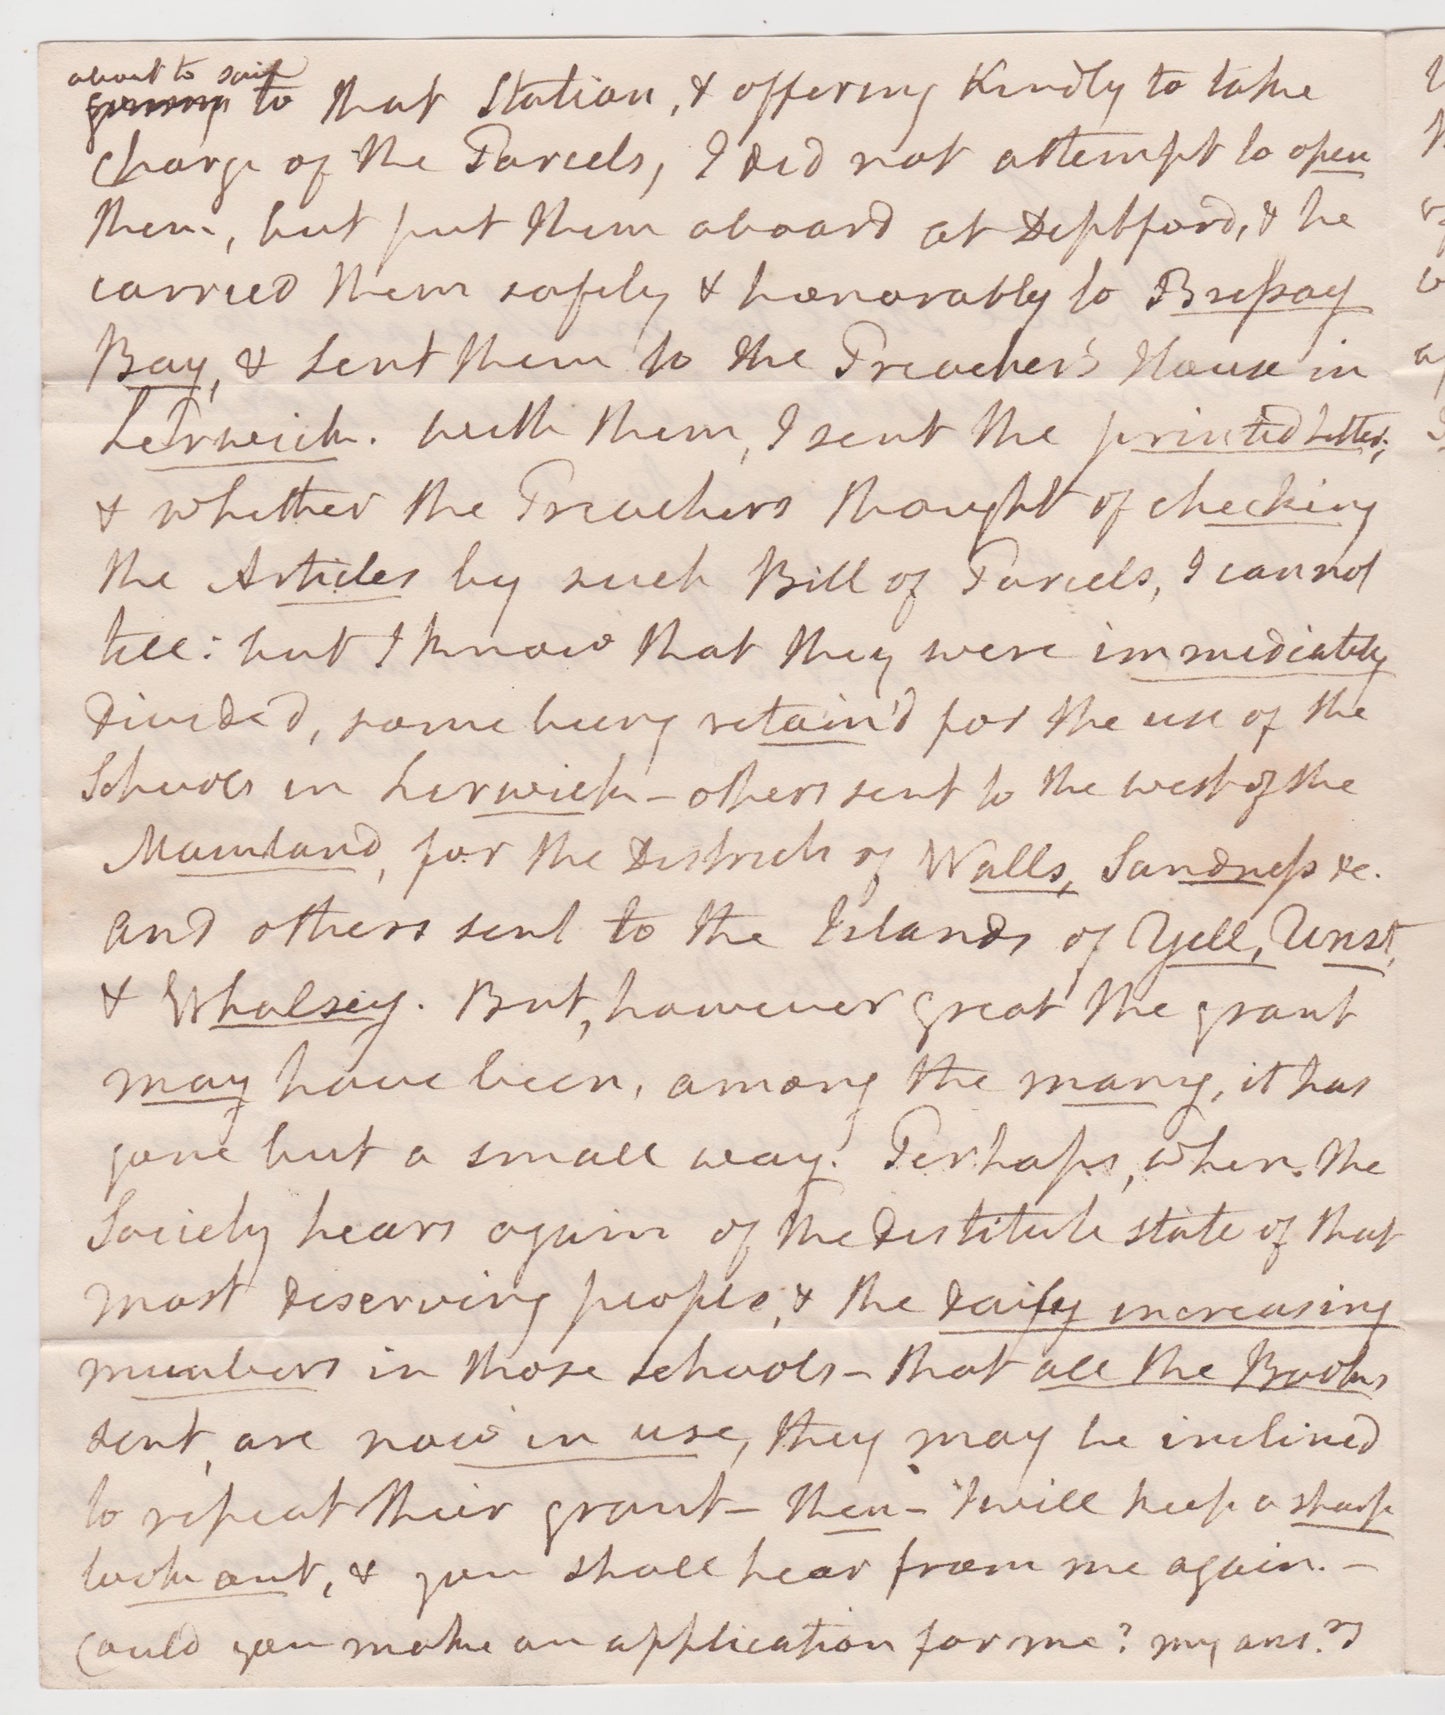 about to sail
going to that Station, & offering Kindly to take
charge of the Parcels, I did not attempt to open
them, but put them aboard at Deptford, & he
carried them safely & honorably to Bressay
Bay, & sent them to the Preacher's House in
Lerwick. With them, I sent the printed Letter;
& whether the Preachers thought of checking
the Articles by such Bill of Parcels, I cannot
tell: but I know that they were immediately
divided, some being retain'd for the use of the
Schools in Lerwick – others sent to the west of the
Mainland, for the Districts of Walls, Sandness &c.
and others sent to the Islands of Yell, Unst,
& Whalsey. But, however great the grant
may have been, among the many, it has
gone but a small way. Perhaps, when the
Society hears again of the destitute state of that
most deserving people, & the daily increasing
numbers in those schools – that all the Books
sent, are now in use, they may be inclined
to repeat their grant – then – I will keep a sharp
look out, & you shall hear from me again. –
Could you make an application for me? my ans.rd